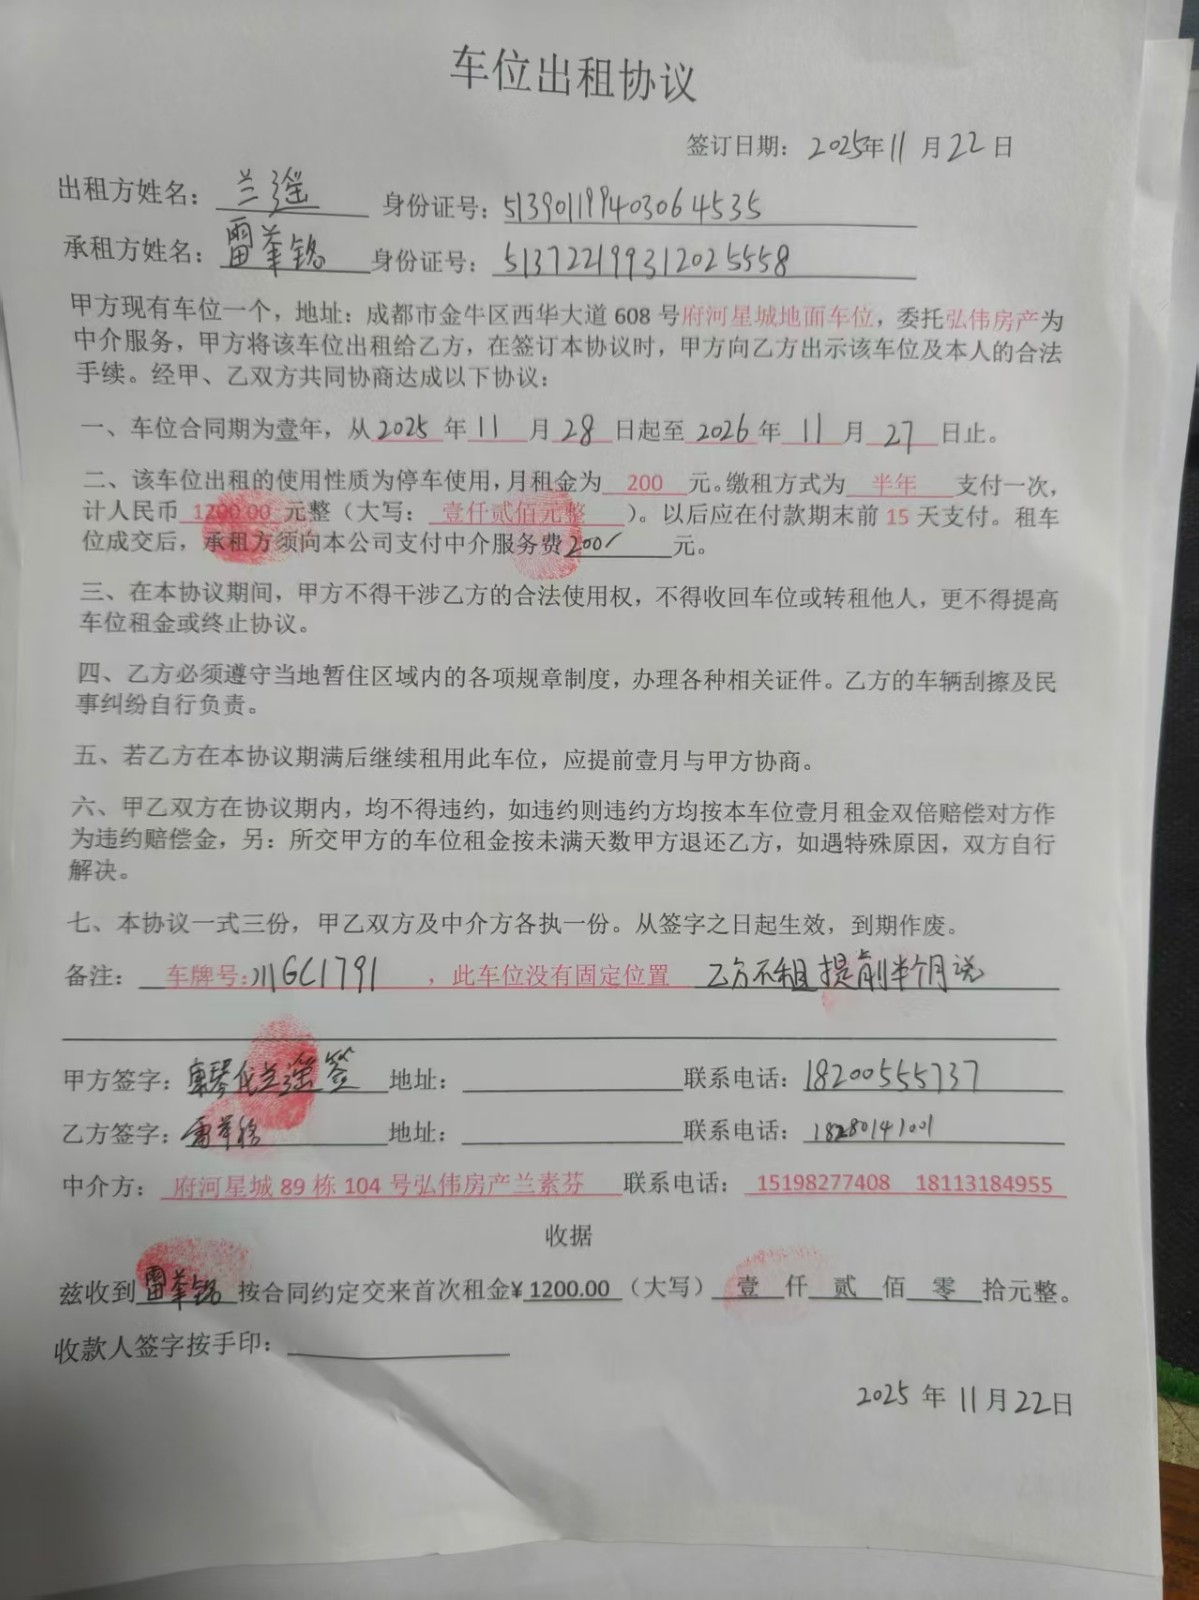 车位出租协议
签订日期：2025年11月22日
出租方姓名：兰瑶 身份证号：513901199403064535
承租方姓名：雷苹铭 身份证号：513722199312025558
甲方现有车位一个，地址：成都市金牛区西华大道 608 号府河星城地面车位，委托弘伟房产为
中介服务，甲方将该车位出租给乙方，在签订本协议时，甲方向乙方出示该车位及本人的合法
手续。经甲、乙双方共同协商达成以下协议：
一、车位合同期为壹年，从2025年11月28日起至2026年11月27日止。
二、该车位出租的使用性质为停车使用，月租金为 200 元。缴租方式为 半年 支付一次，
计人民币 1200.00 元整（大写：壹仟贰佰元整）。以后应在付款期末前 15 天支付。租车
位成交后，承租方须向本公司支付中介服务费200元。
三、在本协议期间，甲方不得干涉乙方的合法使用权，不得收回车位或转租他人，更不得提高
车位租金或终止协议。
四、乙方必须遵守当地暂住区域内的各项规章制度，办理各种相关证件。乙方的车辆刮擦及民
事纠纷自行负责。
五、若乙方在本协议期满后继续租用此车位，应提前壹月与甲方协商。
六、甲乙双方在协议期内，均不得违约，如违约则违约方均按本车位壹月租金双倍赔偿对方作
为违约赔偿金，另：所交甲方的车位租金按未满天数甲方退还乙方，如遇特殊原因，双方自行
解决。
七、本协议一式三份，甲乙双方及中介方各执一份。从签字之日起生效，到期作废。
备注：车牌号：川GC1791，此车位没有固定位置 乙方不租提前半个月说
甲方签字：琴代兰瑶签 地址： 联系电话：18200555737
乙方签字：雷苹铭 地址： 联系电话：18280141001
中介方：府河星城 89 栋 104 号弘伟房产兰素芬 联系电话：15198277408 18113184955
收据
兹收到雷苹铭按合同约定交来首次租金¥1200.00（大写）壹仟贰佰零拾元整。
收款人签字按手印：
2025年11月22日